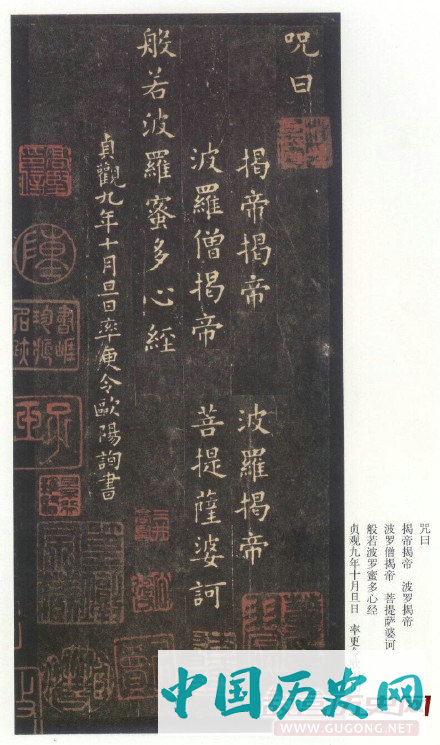 咒曰
揭帝揭帝 波羅揭帝
波羅僧揭帝 菩提薩婆訶
般若波羅蜜多心經
貞觀九年十月旦日率更令歐陽詢書
咒曰
揭帝揭帝 波罗揭帝
波罗僧揭帝 菩提萨婆诃
般若波罗蜜多心经
贞观九年十月旦日 率更
中国历史网
WWW.GUGONG.NET